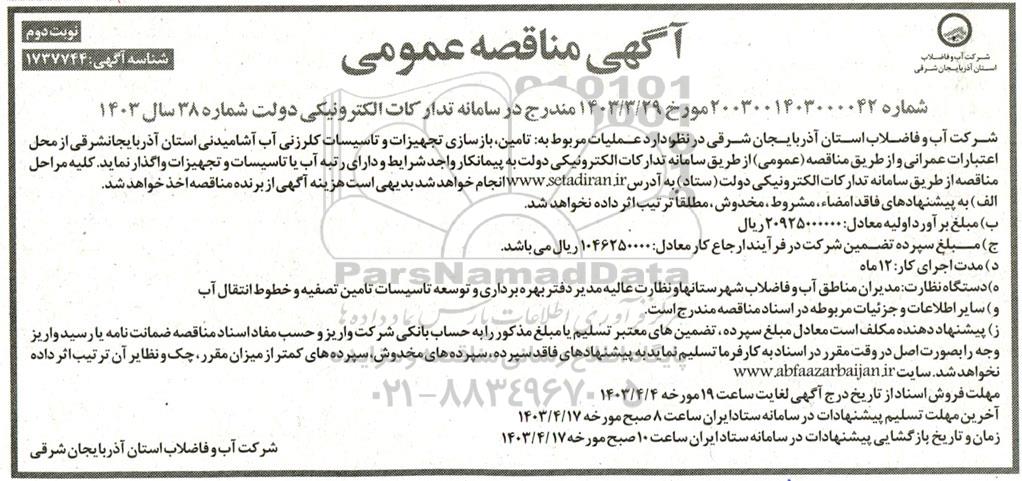 نوبت دوم
شناسه آگهی: ۱۷۳۷۷۴۴
آگهی مناقصه عمومی
شرکت آب و فاضلاب
استان آذربایجان شرقی
شماره ۲۰۰۳۰۰۱۴۰۳۰۰۰۰۴۲ مورخ ۱۴۰۳/۳/۲۹ مندرج در سامانه تدارکات الکترونیکی دولت شماره ۳۸ سال ۱۴۰۳
شرکت آب و فاضلاب استان آذربایجان شرقی در نظر دارد عملیات مربوط به: تامین، بازسازی تجهیزات و تاسیسات کلرزنی آب آشامیدنی استان آذربایجانشرقی از محل
اعتبارات عمرانی و از طریق مناقصه (عمومی) از طریق سامانه تدارکات الکترونیکی دولت به پیمانکار واجد شرایط و دارای رتبه آب یا تاسیسات و تجهیزات واگذار نماید. کلیه مراحل
مناقصه از طریق سامانه تدارکات الکترونیکی دولت (ستاد) به آدرس www.setadiran.ir انجام خواهد شد بدیهی است هزینه آگهی از برنده مناقصه اخذ خواهد شد.
الف) به پیشنهادهای فاقد امضاء، مشروط، مخدوش، مطلقا ترتیب اثر داده نخواهد شد.
ب) مبلغ برآورد اولیه معادل: ۲۰۹۲۵۰۰۰۰۰۰ ریال
ج) مبلغ سپرده تضمین شرکت در فرآیند ارجاع کار معادل: ۱۰۴۶۲۵۰۰۰۰ ریال می باشد.
د) مدت اجرای کار: ۱۲ ماه
ه) دستگاه نظارت: مدیران مناطق آب و فاضلاب شهرستانها و نظارت عالیه مدیر دفتر بهره برداری و توسعه تاسیسات تامین تصفیه و خطوط انتقال آب
و) سایر اطلاعات و جزئیات مربوطه در اسناد مناقصه مندرج است.
ز) پیشنهاد دهنده مکلف است معادل مبلغ سپرده، تضمین های معتبر تسلیم یا مبلغ مذکور را به حساب بانکی شرکت واریز و حسب مفاد اسناد مناقصه ضمانت نامه یا رسید واریز
وجه را بصورت اصل در وقت مقرر در اسناد به کارفرما تسلیم نماید به پیشنهادهای فاقد سپرده، سپرده های مخدوش، سپرده های کمتر از میزان مقرر، چک و نظایر آن ترتیب اثر داده
نخواهد شد. سایت www.abfaazarbaijan.ir
مهلت فروش اسناد از تاریخ درج آگهی لغایت ساعت ۱۹ مورخه ۱۴۰۳/۴/۴
آخرین مهلت تسلیم پیشنهادات در سامانه ستاد ایران ساعت ۸ صبح مورخه ۱۴۰۳/۴/۱۷
زمان و تاریخ بازگشایی پیشنهادات در سامانه ستاد ایران ساعت ۱۰ صبح مورخه ۱۴۰۳/۴/۱۷
شرکت آب و فاضلاب استان آذربایجان شرقی
ParsNamadData
۰۲۱-۸۸۳۴۹۶۷۰-۵